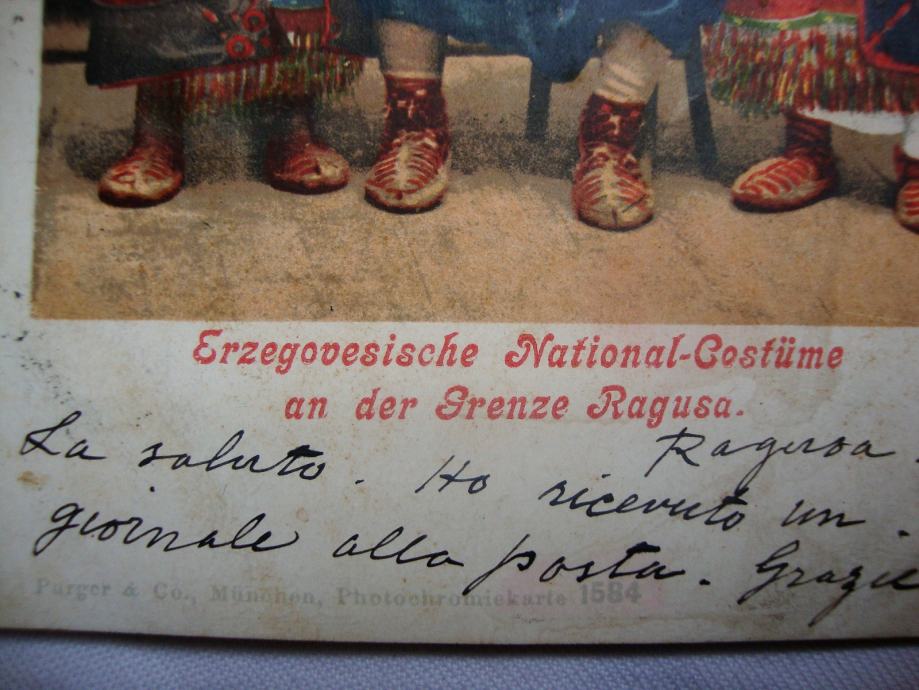 Erzegovesische National-Costüme
an der Grenze Ragusa.
Ragusa
La saluto. Ho ricevuto un
giornale alla posta. Grazie
Purger & Co., München, Photochromiekarte 1584